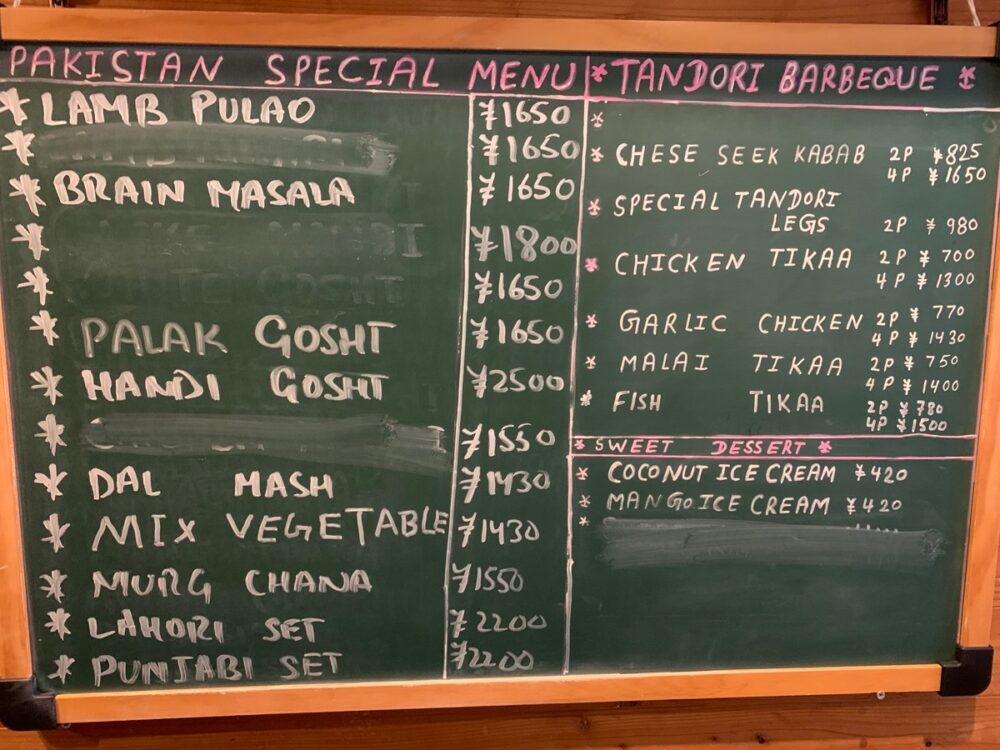 PAKISTAN SPECIAL MENU
* LAMB PULAO ¥1650
* ¥1650
* BRAIN MASALA ¥1650
* ¥1800
* ¥1650
* PALAK GOSHT ¥1650
* HANDI GOSHT ¥2500
* ¥1550
* DAL MASH ¥1430
* MIX VEGETABLE ¥1430
* MURG CHANA ¥1550
* LAHORI SET ¥2200
* PUNJABI SET ¥2200
* TANDORI BARBEQUE *
*
* CHESE SEEK KABAB 2P ¥825
4P ¥1650
* SPECIAL TANDORI
LEGS 2P ¥980
* CHICKEN TIKAA 2P ¥700
4P ¥1300
* GARLIC CHICKEN 2P ¥770
4P ¥1430
* MALAI TIKAA 2P ¥750
4P ¥1400
* FISH TIKAA 2P ¥780
4P ¥1500
* SWEET DESSERT *
* COCONUT ICE CREAM ¥420
* MANGO ICE CREAM ¥420
*